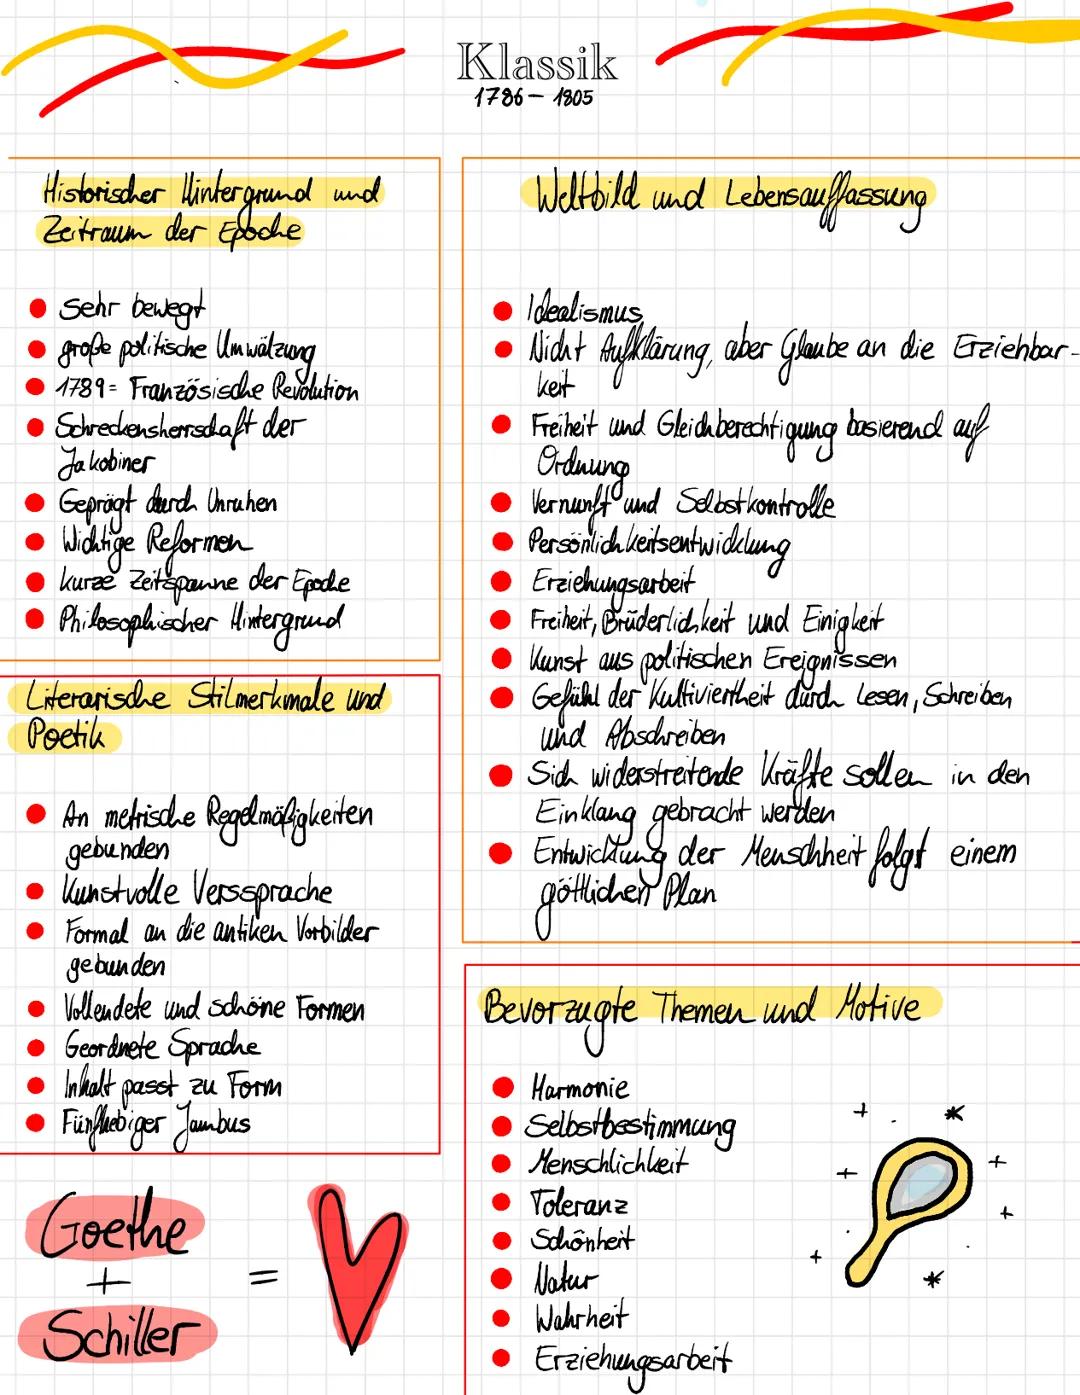 Klassik
1786 - 1805
Historischer Hintergrund und
Zeitraum der Epoche
Sehr bewegt
große politische Umwälzung
1789 = Französische Revolution
Schreckensherrschaft der
Jakobiner
Geprägt durch Unruhen
Wichtige Reformen
kurze Zeitspanne der Epoche
Philosophischer Hintergrund
Literarische Stilmerkmale und
Poetik
An metrische Regelmäßigkeiten
gebunden
Kunstvolle Verssprache
Formal an die antiken Vorbilder
gebunden
Vollendete und schöne Formen
Geordnete Sprache
Inhalt passt zu Form
Fünfhebiger Jambus
Goethe
+
Schiller
=
Weltbild und Lebensauffassung
Idealismus
Nicht Aufklärung, aber Glaube an die Erziehbar-
keit
Freiheit und Gleichberechtigung basierend auf
Ordnung
Vernunft und Selbstkontrolle
Persönlichkeitsentwicklung
Erziehungsarbeit
Freiheit, Brüderlichkeit und Einigkeit
Kunst aus politischen Ereignissen
Gefühl der Kultiviertheit durch Lesen, Schreiben
und Abschreiben
Sich widerstreitende Kräfte sollen in den
Einklang gebracht werden
Entwicklung der Menschheit folgt einem
göttlichen Plan
Bevorzugte Themen und Motive
Harmonie
Selbstbestimmung
Menschlichkeit
Toleranz
Schönheit
Natur
Wahrheit
Erziehungsarbeit